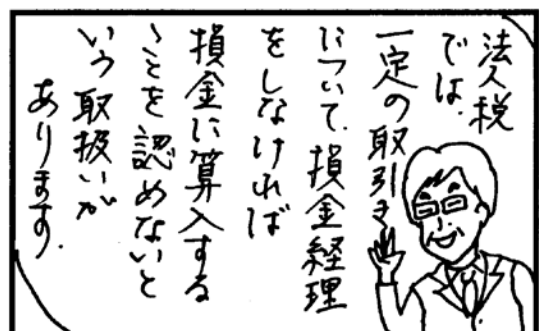 法人税
では、
一定の取引き
について、損金経理
をしなければ
損金に算入する
ことを認めないと
いう取扱いが
あります。